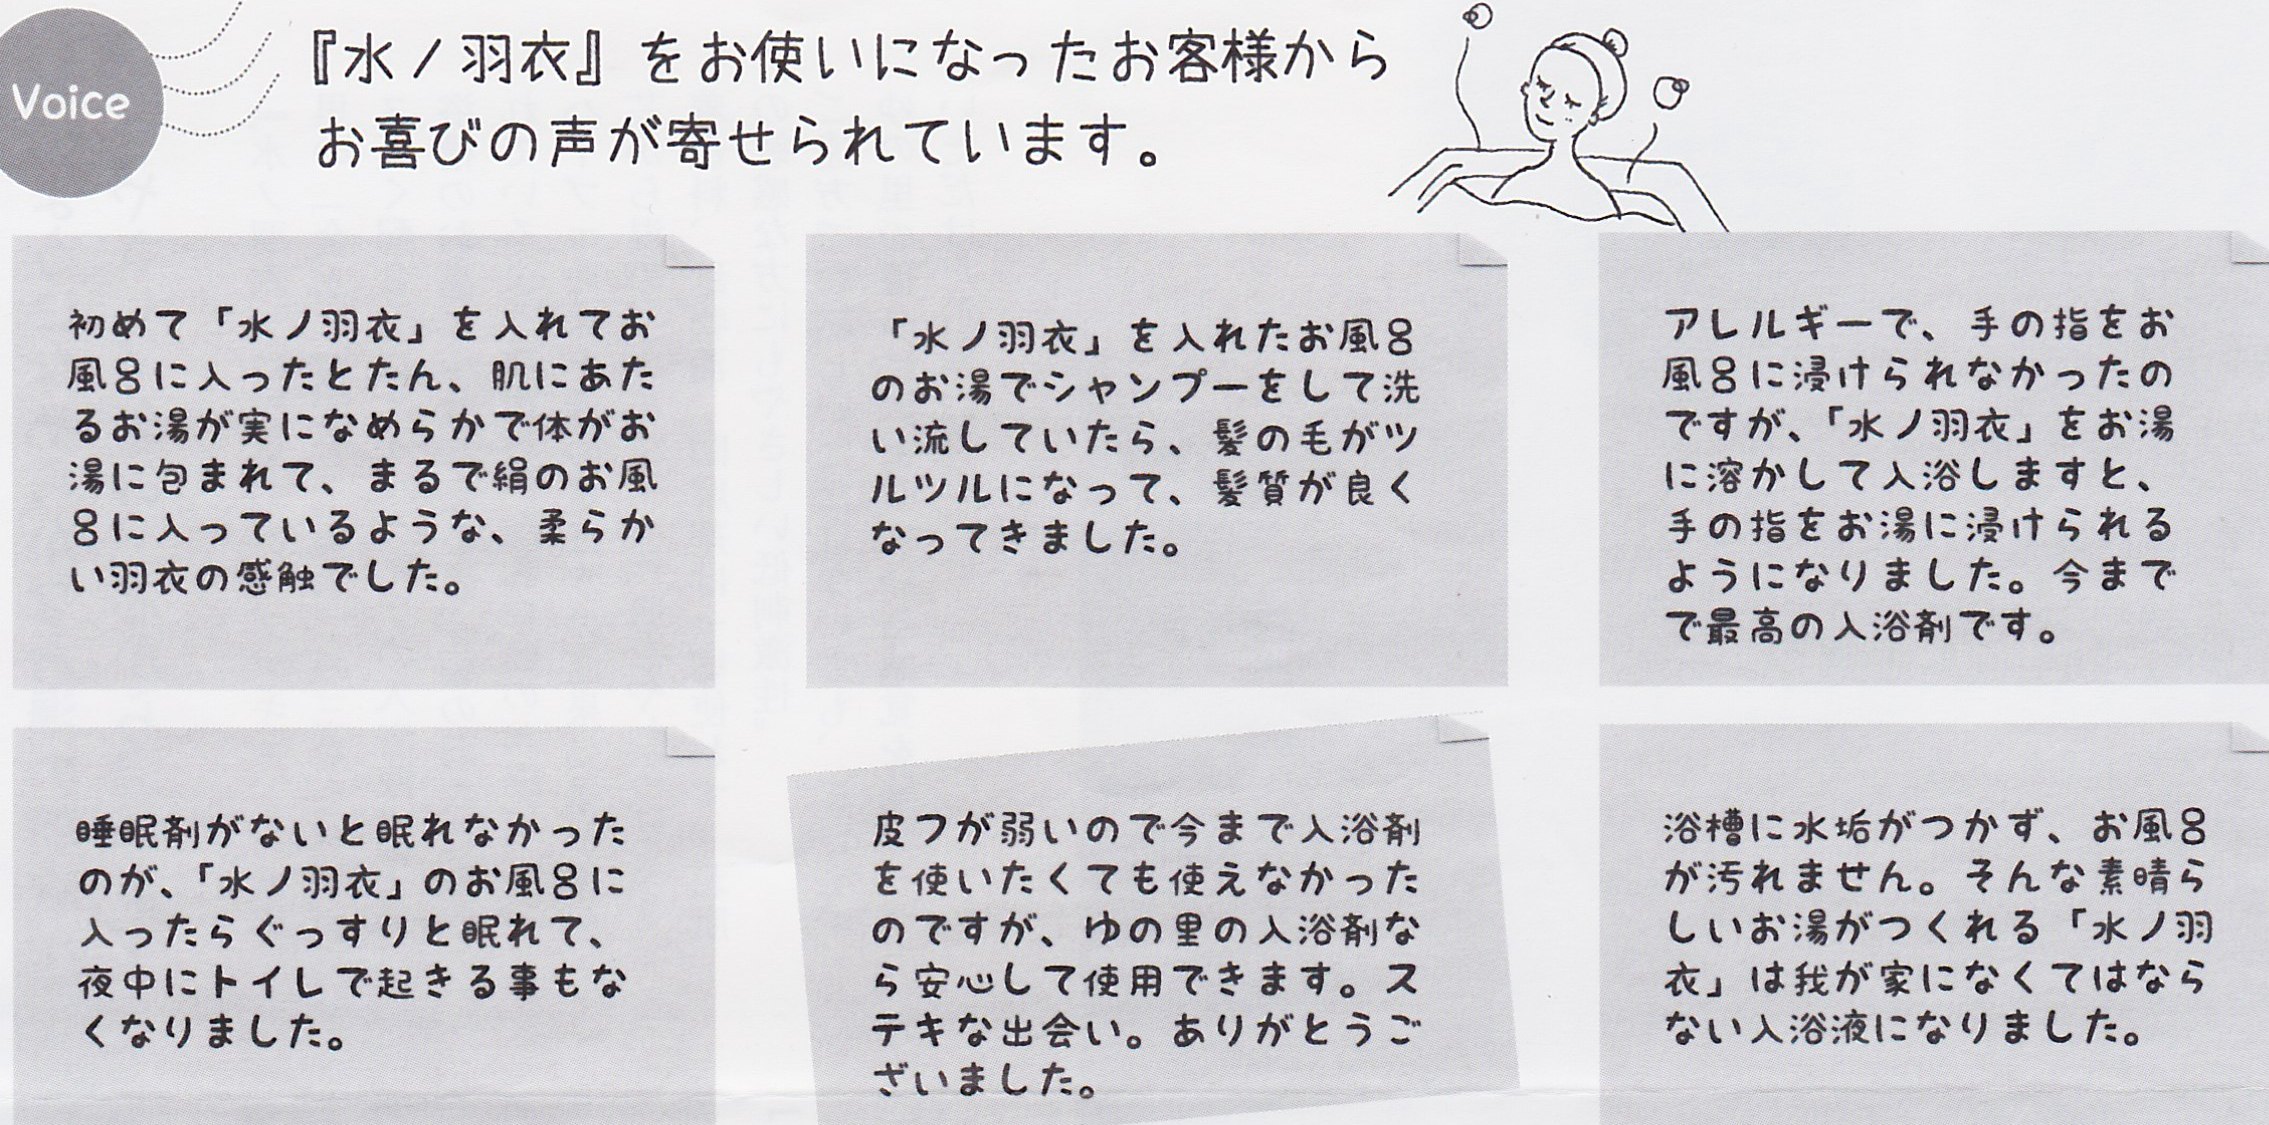 Voice
『水ノ羽衣』をお使いになったお客様から
お喜びの声が寄せられています。
初めて「水ノ羽衣」を入れてお
風呂に入ったとたん、肌にあた
るお湯が実になめらかで体がお
湯に包まれて、まるで絹のお風
呂に入っているような、柔らか
い羽衣の感触でした。
「水ノ羽衣」を入れたお風呂
のお湯でシャンプーをして洗
い流していたら、髪の毛がツ
ルツルになって、髪質が良く
なってきました。
アレルギーで、手の指をお
風呂に浸けられなかったの
ですが、「水ノ羽衣」をお湯
に溶かして入浴しますと、
手の指をお湯に浸けられる
ようになりました。今まで
で最高の入浴剤です。
睡眠剤がないと眠れなかった
のが、「水ノ羽衣」のお風呂に
入ったらぐっすりと眠れて、
夜中にトイレで起きる事もな
くなりました。
皮フが弱いので今まで入浴剤
を使いたくても使えなかった
のですが、ゆの里の入浴剤な
ら安心して使用できます。ス
テキな出会い。ありがとうご
ざいました。
浴槽に水垢がつかず、お風呂
が汚れません。そんな素晴ら
しいお湯がつくれる「水ノ羽
衣」は我が家になくてはなら
ない入浴液になりました。